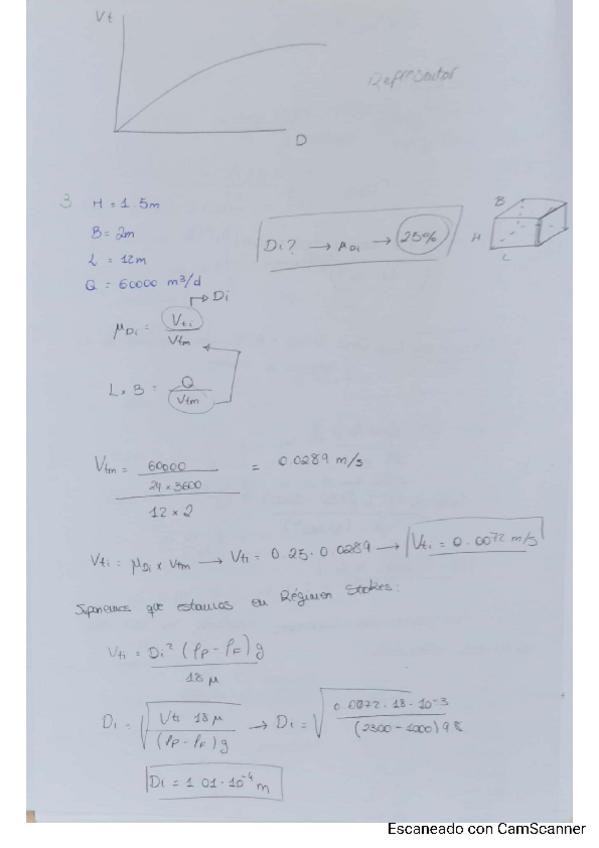 Vt
D
3 H = 1.5m
B = 2m
L = 12m
Q = 60000 m³/d
Di? → μDi → 25%
B
H
L
→ Di
μDi = Vti / Vtm
L x B = Q / Vtm
Vtm = (60000 / (24 x 3600)) / (12 x 2) = 0.0289 m/s
Vti = μDi x Vtm → Vti = 0.25 · 0.0289 → Vti = 0.0072 m/s
Suponemos que estamos en Régimen Stokes:
Vti = Di² (ρp - ρF) g / 18 μ
Di = √(Vti 18 μ / (ρp - ρF) g) → Di = √(0.0072 · 18 · 10⁻³ / (2300 - 1000) 9.8)
Di = 1.01 · 10⁻⁴ m
Escaneado con CamScanner